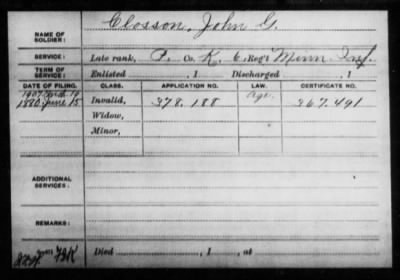 NAME OF SOLDIER: Closson, John G.
SERVICE: Late rank, P. Co. K, 6. Reg't Minn. Inf.
TERM OF SERVICE: Enlisted , 1 Discharged , 1
DATE OF FILING. CLASS. APPLICATION NO. LAW. CERTIFICATE NO.
1907
1880, June 15 Invalid, 378.188 Age. 367.491
Widow,
Minor,
ADDITIONAL SERVICES:
REMARKS:
Died , 1 , at